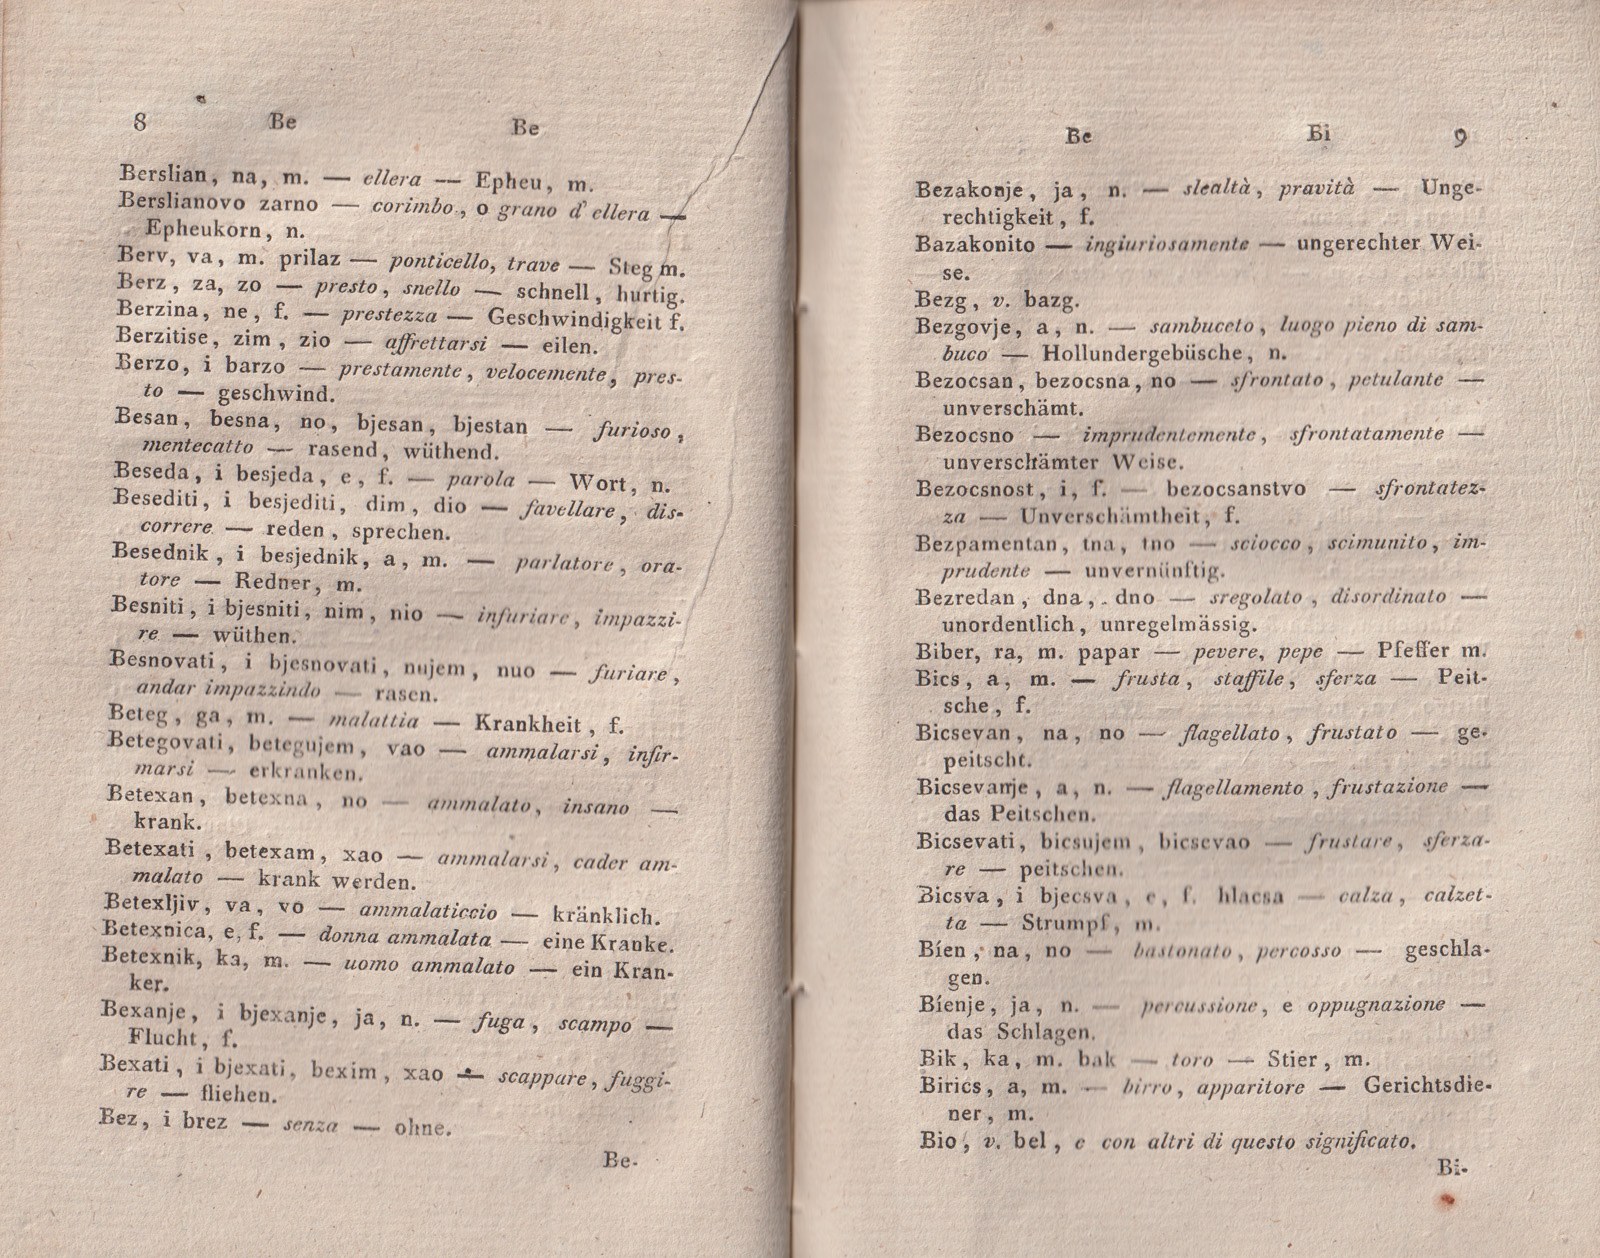 8 Be Be
Berslian, na, m. — ellera — Epheu, m.
Berslianovo zarno — corimbo, o grano d' ellera —
Epheukorn, n.
Berv, va, m. prilaz — ponticello, trave — Steg m.
Berz, za, zo — presto, snello — schnell, hurtig.
Berzina, ne, f. — prestezza — Geschwindigkeit f.
Berzitise, zim, zio — affrettarsi — eilen.
Berzo, i barzo — prestamente, velocemente, pres-
to — geschwind.
Besan, besna, no, bjesan, bjestan — furioso,
mentecatto — rasend, wüthend.
Beseda, i besjeda, e, f. — parola — Wort, n.
Besediti, i besjediti, dim, dio — favellare, dis-
correre — reden, sprechen.
Besednik, i besjednik, a, m. — parlatore, ora-
tore — Redner, m.
Besniti, i bjesniti, nim, nio — infuriare, impazzi-
re — wüthen.
Besnovati, i bjesnovati, nujem, nuo — furiare,
andar impazzindo — rasen.
Beteg, ga, m. — malattia — Krankheit, f.
Betegovati, betegujem, vao — ammalarsi, infir-
marsi — erkranken.
Betexan, betexna, no — ammalato, insano —
krank.
Betexati, betexam, xao — ammalarsi, cader am-
malato — krank werden.
Betexljiv, va, vo — ammalaticcio — kränklich.
Betexnica, e, f. — donna ammalata — eine Kranke.
Betexnik, ka, m. — uomo ammalato — ein Kran-
ker.
Bexanje, i bjexanje, ja, n. — fuga, scampo —
Flucht, f.
Bexati, i bjexati, bexim, xao — scappare, fuggi-
re — fliehen.
Bez, i brez — senza — ohne.
Be-
Be Bi 9
Bezakonje, ja, n. — slealtà, pravità — Unge-
rechtigkeit, f.
Bazakonito — ingiuriosamente — ungerechter Wei-
se.
Bezg, v. bazg.
Bezgovje, a, n. — sambuceto, luogo pieno di sam-
buco — Hollundergebüsche, n.
Bezocsan, bezocsna, no — sfrontato, petulante —
unverschämt.
Bezocsno — imprudentemente, sfrontatamente —
unverschämter Weise.
Bezocsnost, i, f. — bezocsanstvo — sfrontatez-
za — Unverschämtheit, f.
Bezpamentan, tna, tno — sciocco, scimunito, im-
prudente — unvernünftig.
Bezredan, dna, dno — sregolato, disordinato —
unordentlich, unregelmässig.
Biber, ra, m. papar — pevere, pepe — Pfeffer m.
Bics, a, m. — frusta, staffile, sferza — Peit-
sche, f.
Bicsevan, na, no — flagellato, frustato — ge-
peitscht.
Bicsevanje, a, n. — flagellamento, frustazione —
das Peitschen.
Bicsevati, bicsujem, bicsevao — frustare, sferza-
re — peitschen.
Bicsva, i bjecsva, e, f. hlacsa — calza, calzet-
ta — Strumpf, m.
Bíen, na, no — bastonato, percosso — geschla-
gen.
Bíenje, ja, n. — percussione, e oppugnazione —
das Schlagen.
Bik, ka, m. bak — toro — Stier, m.
Birics, a, m. — birro, apparitore — Gerichtsdie-
ner, m.
Bio, v. bel, e con altri di questo significato.
Bi-